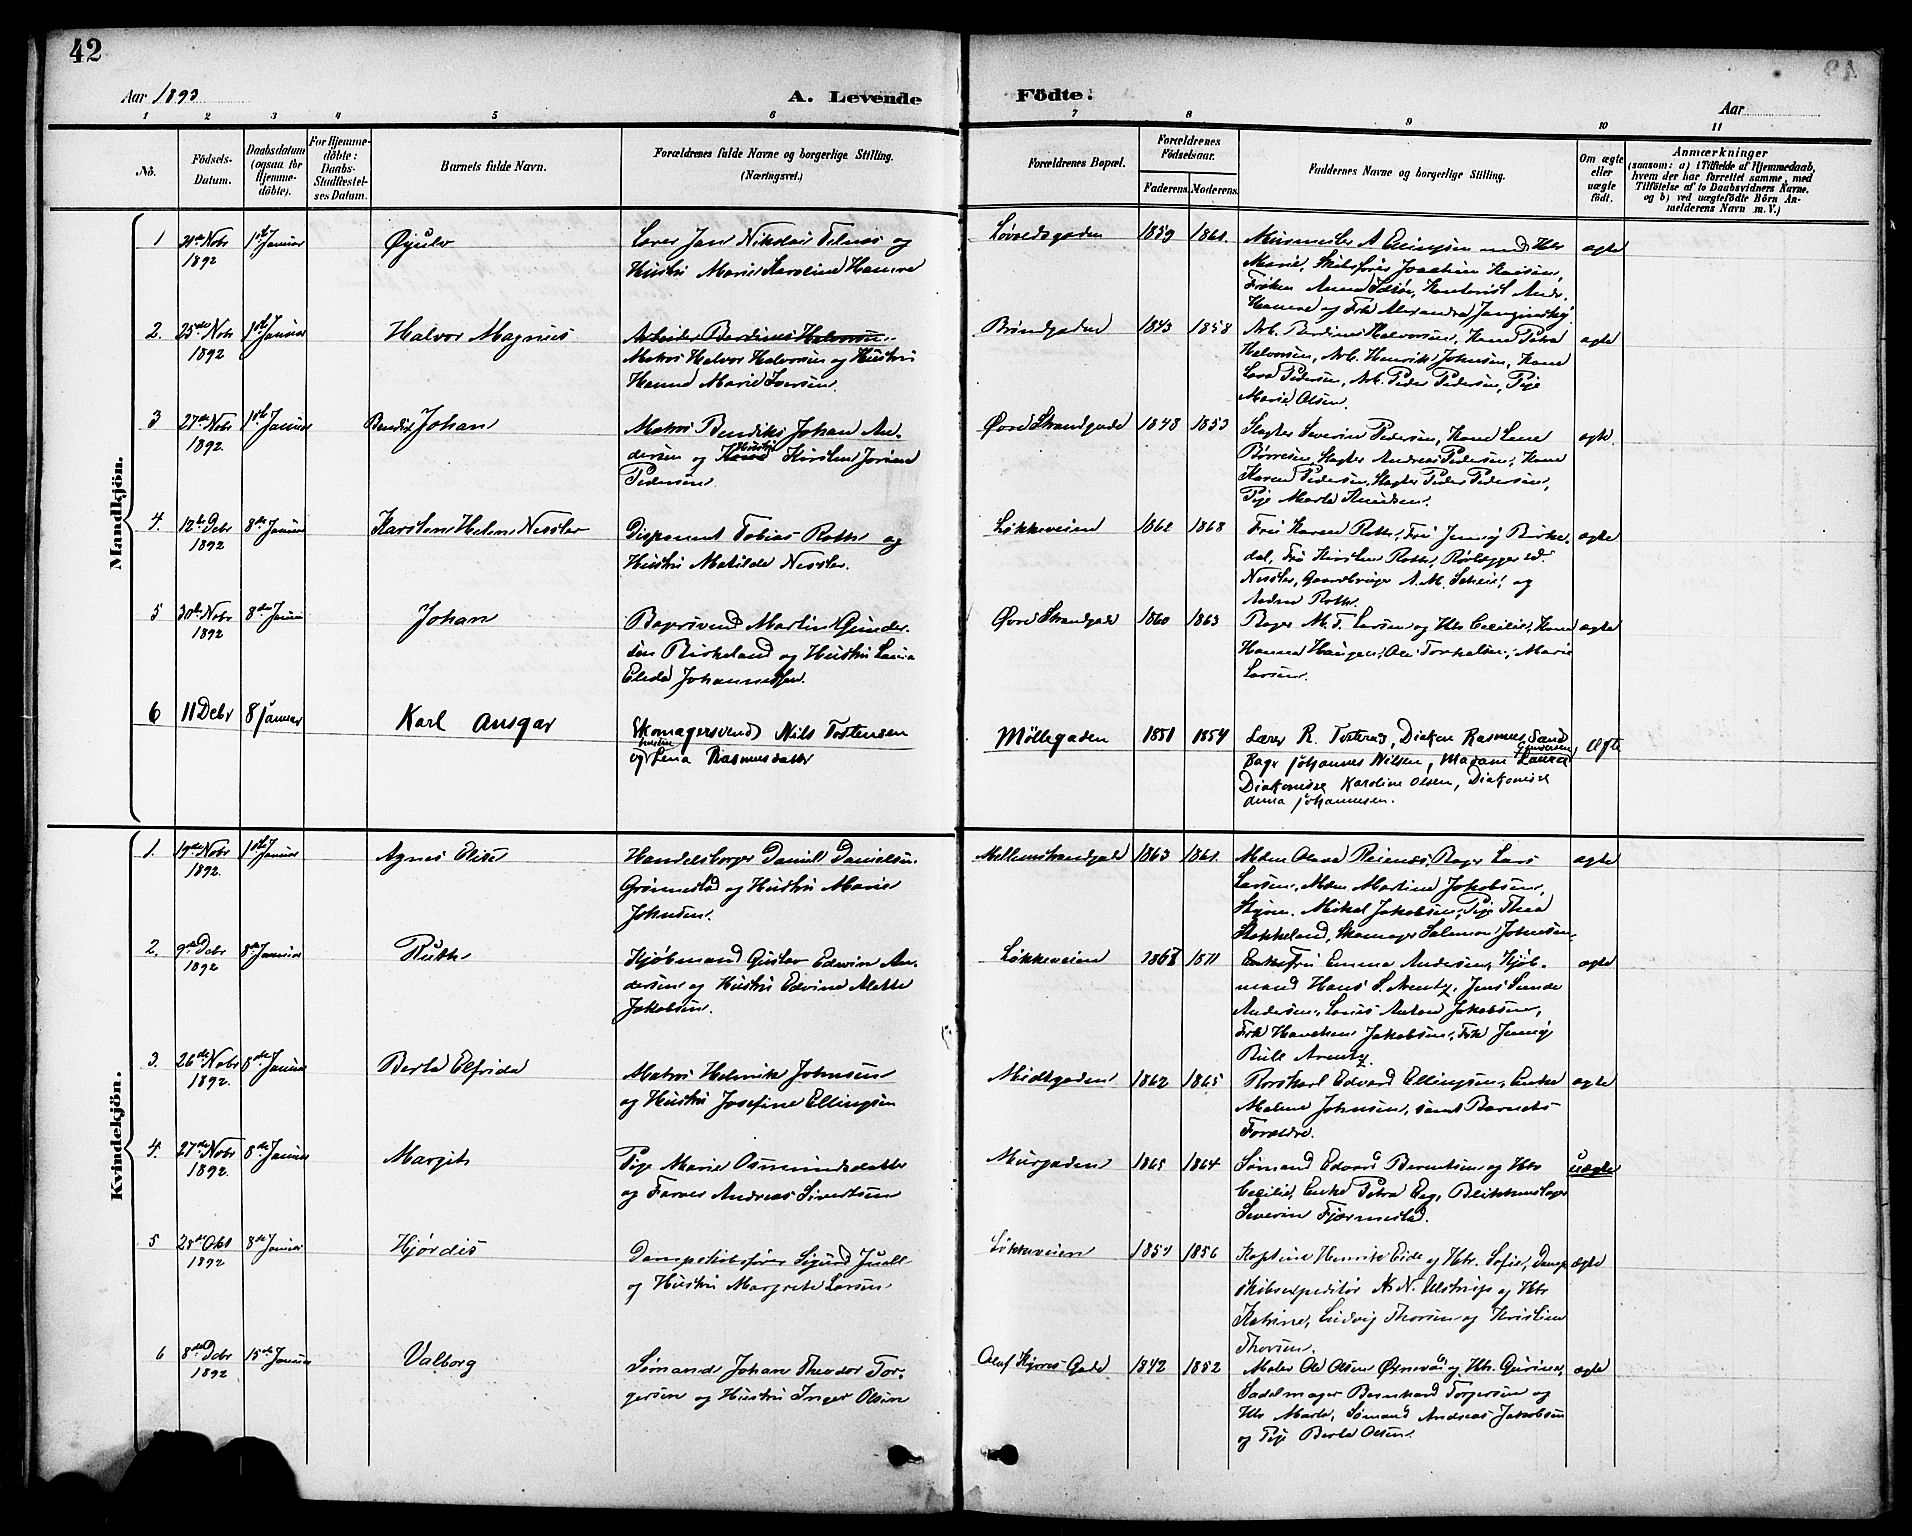 42
Aar 1893
A. Levende
Födte.
Aar
1 2 3 4 5 6 7 8 9 10 11
No.
Födsels-Datum.
Daabsdatum (ogsaa for Hjemmedöbte).
For Hjemmedöbte: Daabs-Stadfestelses Datum.
Barnets fulde Navn.
Forældrenes fulde Navne og borgerlige Stilling.
(Næringsvei.)
Forældrenes Bopæl.
Forældrenes Födselsaar.
Faderens. Moderens.
Faddernes Navne og borgerlige Stilling.
Om ægte eller uægte födt.
Anmærkninger
(saasom: a) i Tilfælde af Hjemmedaab,
hvem der har forrettet samme, med
Tilföielse af to Daabsvidners Navne.
og b) ved uægtefödte Börn An-
melderens Navn m. V.)
Mandkjön.
1 21de Nobr 1892 1ste Januar Øyulv
Lærer Jan Nikolai Telnæs og
Hustru Marie Karoline Hamre
Løvoldsgaden 1859 1861.
Murmester A. Ellingsen med Htr
Marie, Skibsfører Joachim Hansen,
Hamre og Frk Alexandra
ægte
2. 25de Nobr 1892 1ste Januar Halvor Magnus
Arbeider Berdines Halvorsen.
Matros Halvor Halvorsen og Hustru
Hanna Marie Iversen.
Brøndgaden 1843 1858
Arb. Berdines Halvorsen, Kone Petra
Halvorsen, Arb. Henrik Johnsen, Kone
Lava Pedersen, Arb. Peder Pedersen, Pige
Marie Olsen.
ægte
3 27de Nobr 1892. 1ste Januar Bendix Johan
Matros Bendiks Johan An-
dersen og Kone Hustru Kirsten Jorine
Pedersen
Øvre Strandgade 1848 1853
Slagter Severin Pedersen, Kone Lene
Børresen, Slagter Andreas Pedersen, Kone
Karen Pedersen, Slagter Peder Pedersen,
Pige Marta Knudsen.
ægte
4. 12te Debr 1892 8de Januar Karsten Helmer Nessler
Disponent Tobias Roth og
Hustru Matilde Nessler.
Løkkeveien 1862 1868
Fru Karen Roth, Fru Jenny Birke-
dal, Frø Kirsten Roth, Rørlægger Ed.
Nessler, Gaardbruger A. M. Scheie, og
Anders Roth.
ægte
5 30te Nobr 1892 8de Januar Johan
Bagersvend Martin Gunder-
sen Birkeland og Hustru Laura
Elida Johannessen.
Øvre Strandgade 1860 1863
Bager M. T. Larsen og Htr Cecilie, Kone
Hanna Haugen, Ole Torkelsen, Marie
Larsen.
ægte
6 11 Debr 8 januar Karl Ansgar
Skomagersvend Nils Tostensen
og hustru Lena Rasmusdatter
Møllegaden 1851 1854
Lærer R. Tveteraas, Diakon Rasmus Sand
Bager Johannes Nilsen, Madam Laura Gundersen,
Diakonisse Karoline Olsen, Diakonisse
Anna Johannesen.
Ægte
Kvindekjön.
1. 19de Nobr 1892. 1ste Januar Agnes Elise
Handelsborger Daniel Danielsen
Grønnestad og Hustru Marie
Johnsen.
Mellemstrandgade 1863 1861.
Mdm Olava Reienæs, Bager Lars
Larsen, Mdm Martine Jakobsen,
Stuer. Mikal Jakobsen, Pige Thea
Stokkeland, Skomager Salomon Johnsen.
ægte
2. 9de Debr 1892 8de Januar Ruth
Kjøbmand Gustav Edwin An-
dersen og Hustru Edvine Alette
Jakobsen.
Løkkeveien 1868 1871
Enkefru Emma Andersen, Kjøb-
mand Hans S. Arentz, Jens Sunde
Andersen, Louis Anton Jakobsen,
Frk Hanchen Jakobsen, Frk Jenny
Bull Arentz.
ægte
3. 26de Nobr 1892. 8de Januar Berta Elfrida
Matros Helmik Johnsen
og Hustru Josefine Ellingsen
Midtgaden 1862 1865
Rorskarl Edvard Ellingsen, Enke
Malene Johnsen, samt Barnets
Forældre.
ægte
4. 27de Nobr 1892. 8de Januar Margit
Pige Marie Osmundsdatter
og Farver Andreas Sivertsen
Murgaden 1865 1864
Sømand Edvard Berentsen og Htr
Cecilie, Enke Petra Eeg, Blikkenslager
Severin Fjærmestad.
uægte
5 28de Okt 1892 8de Januar Hjørdis
Dampskibsfører Sigurd Juell
og Hustru Margrete Larsen
Løkkeveien 1857 1856
Kaptein Henrik Eide og Htr. Sofie, Damp
skibsexpeditør N. N. Ulstrup og Htr
Katrine, Ludvig Thorsen og Kristine
Thorsen.
ægte
6 8de Debr 1892 15de Januar Valborg
Sømand Johan Theodor Tor-
gersen og Hustru Inger Olsen
Olaf Kyrres Gade 1842 1852
Maler Ole Olsen Ørnevaag, Htr. Gurine,
Sadelmager Bernhard Torgersen og
Htr Marta, Sømand Andreas Jakobsen
og Pige Berta Olsen.
ægte